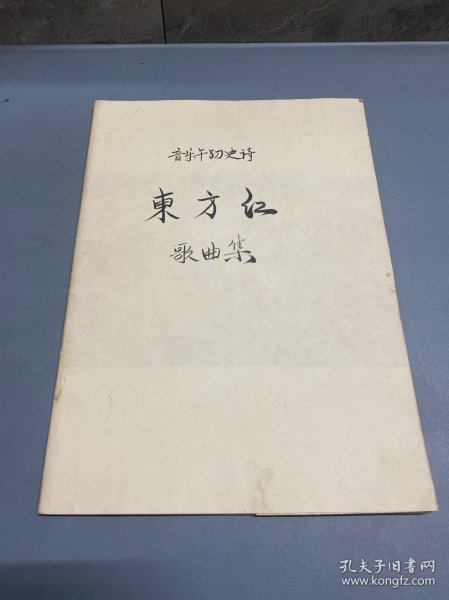 音乐午蹈史诗
東方红
歌曲集
孔夫子旧书网
www.kongfz.com